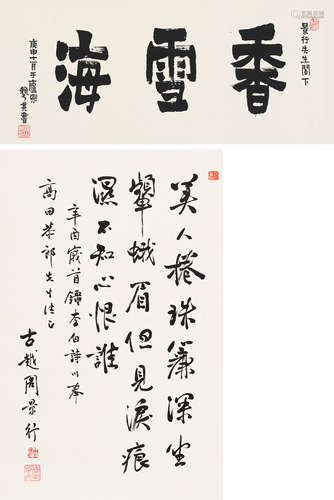 景行先生閣下
香雪海
庚申十一月于廬
美人捲珠簾深坐
顰蛾眉但見淚痕
濕不知心恨誰
辛酉歲首錄李白詩以奉
高田恭祁先生法正
古越周景行